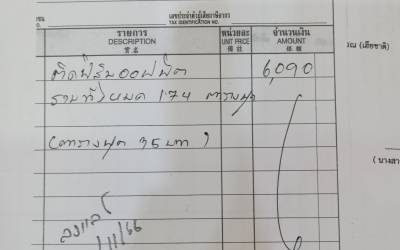 เลขประจำตัวผู้เสียภาษีอากร
TAX IDENTIFICATION NO.
รายการ
DESCRIPTION
หน่วยละ
UNIT PRICE
จำนวนเงิน
AMOUNT
ติดฟิล์มออฟฟิต 6,090
รวมทั้งหมด 174 ตารางฟุต
(ตารางฟุต 35 บาท)
/11/66
(นางสา